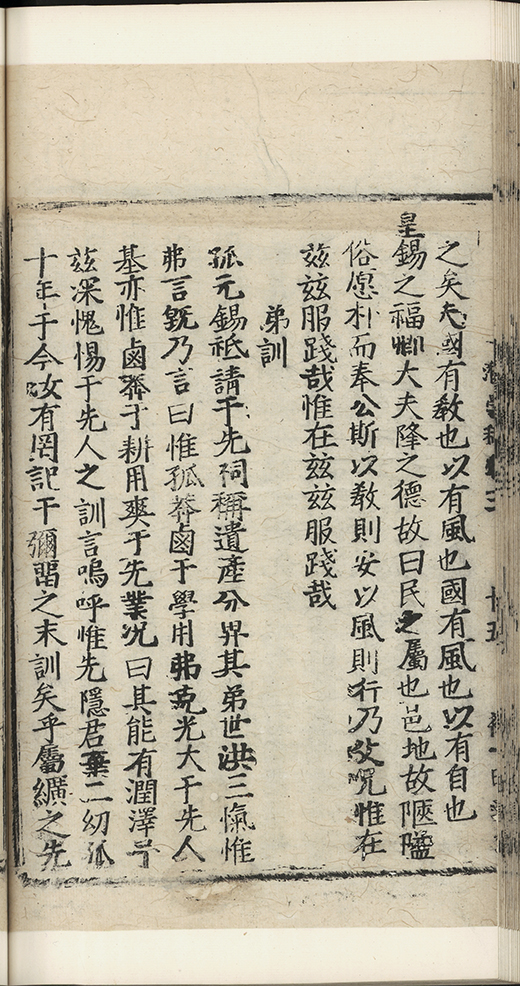 之矣夫國有教也以有風也國有風也以有自也
皇錫之福卿大夫降之德故曰民之屬也邑地故陿隘
俗愿朴而奉公斯以教則安以風則行乃攽呪惟在
玆玆服踐哉惟在玆玆服踐哉
弟訓
孤元錫祗請于先祠稱遺產分界其弟世洪三愾惟
弗言旣乃言曰惟孤莽鹵于學用弗克光大于先人
基亦惟鹵莽于耕用爽于先業况曰其能有潤澤于
玆深愧惕于先人之訓言嗚呼惟先隱君棄二幼孤
十年于今汝有罔記于彌留之末訓矣乎屬纊之先
十五